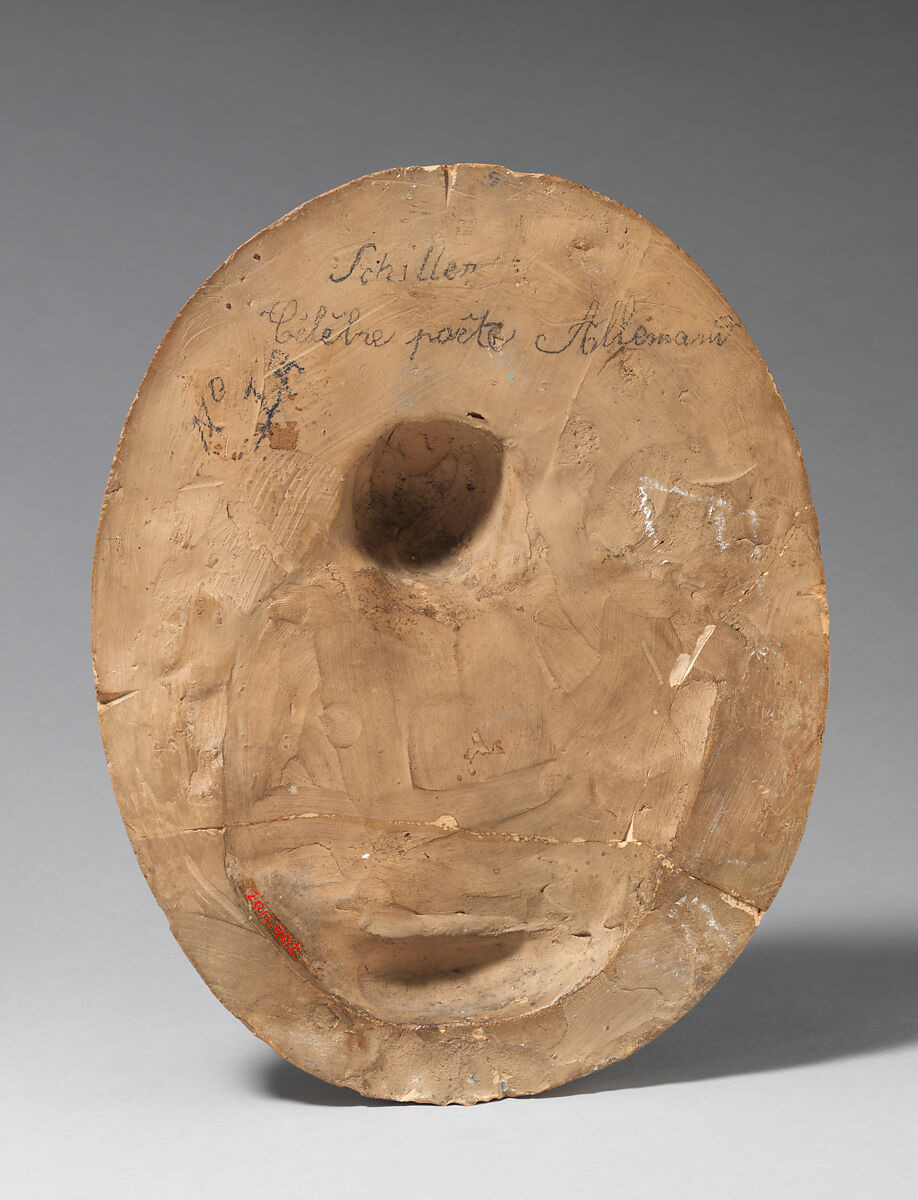 Schiller
Célèbre poëte Allemand
No